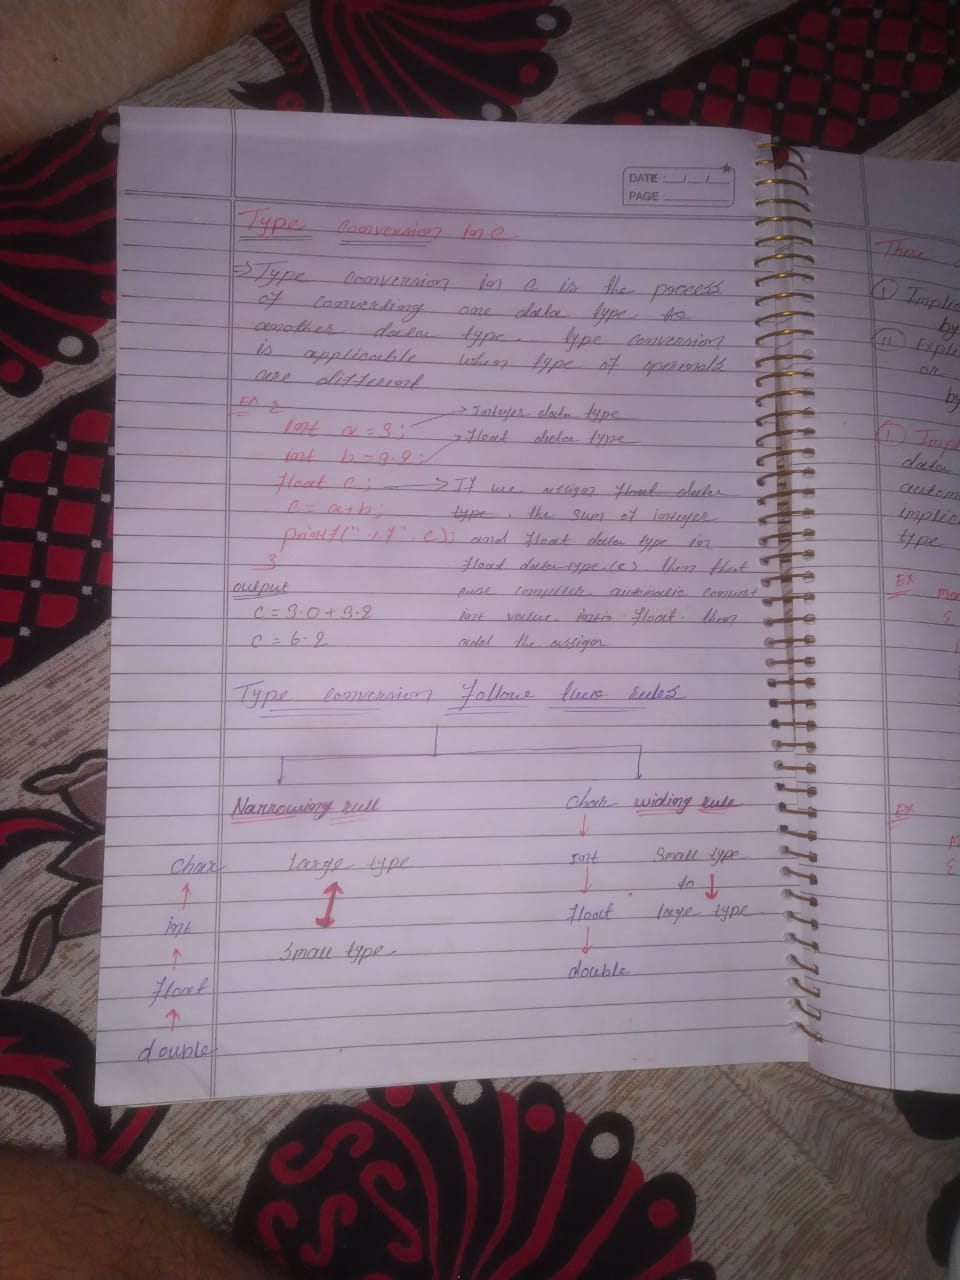 DATE : / /
PAGE :
Type conversion in C
=> Type conversion in c is the process
of converting one data type to
another data type. type conversion
is applicable when type of operands
are different
EX {
int a = 3; → Integer data type
int b = 3.2; → float data type
float c; → If we assign float data
c = a+b; type. the sum of integer
printf(" ", c); and float data type in
} float data type (c). then
output compiler automatic convert
c = 3.0 + 3.2 int value into float. then
c = 6.2 add the assign
Type conversion follow two rules
Narrowing rule
char
↑
int
↑
float
↑
double
large type
↕
Small type
widing rule
char
↓
Int
↓
float
↓
double
Small type
to ↓
large type
These
I Implic
by
II Expli
or
by
I Impl
data
autom
implic
type
EX
EX